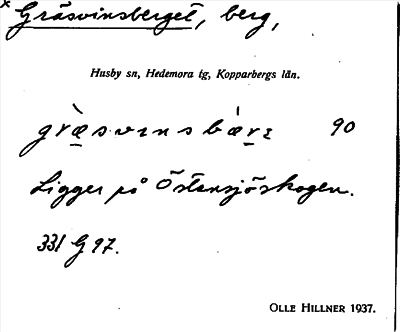 x Gräsvinsberget, berg,
Husby sn, Hedemora tg, Kopparbergs län.
græ̀svinsbæ̀rɛ 90
Ligger på Östansjöskogen.
331 G 97.
OLLE HILLNER 1937.